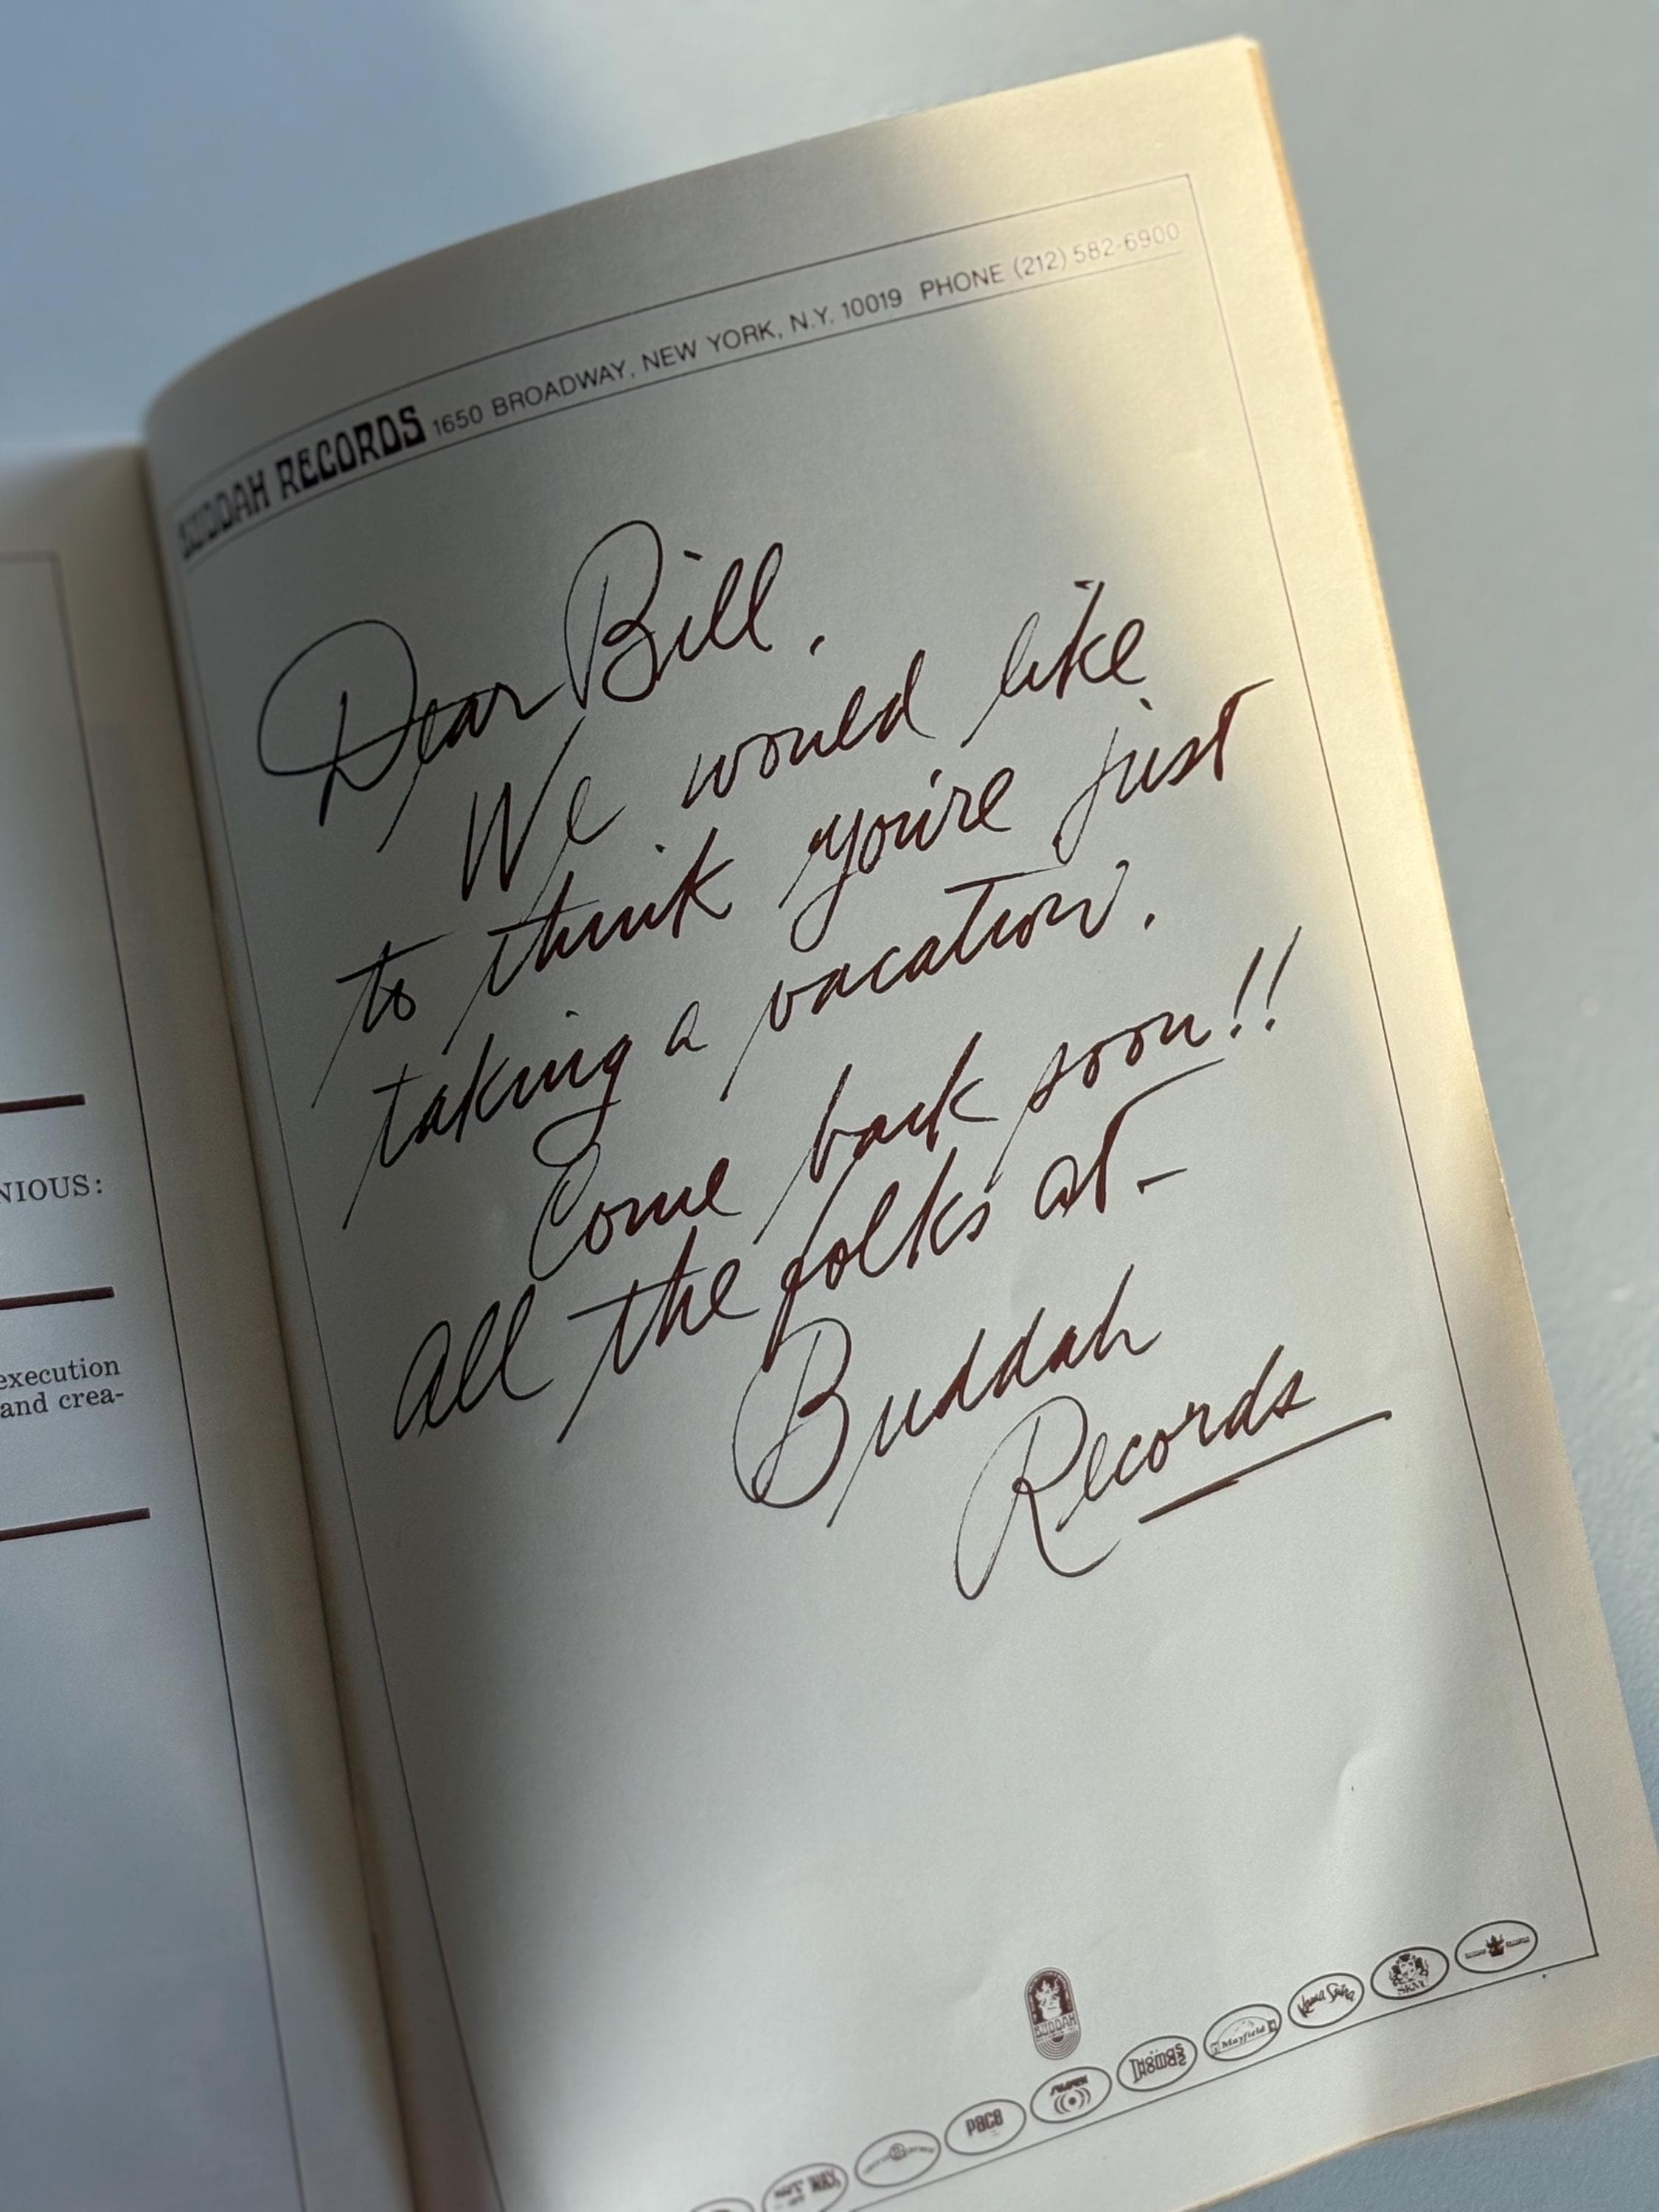 BUDDAH RECORDS 1650 BROADWAY, NEW YORK, N.Y. 10019 PHONE (212) 582-6900
Dear Bill,
We would like
to think you're just
taking a vacation.
Come back soon!!
All the folks at-
Buddah
Records
NIOUS:
execution
and crea-
BUDDAH
PACE
THOMAS
Mayfield
Kama Sutra
SKYE